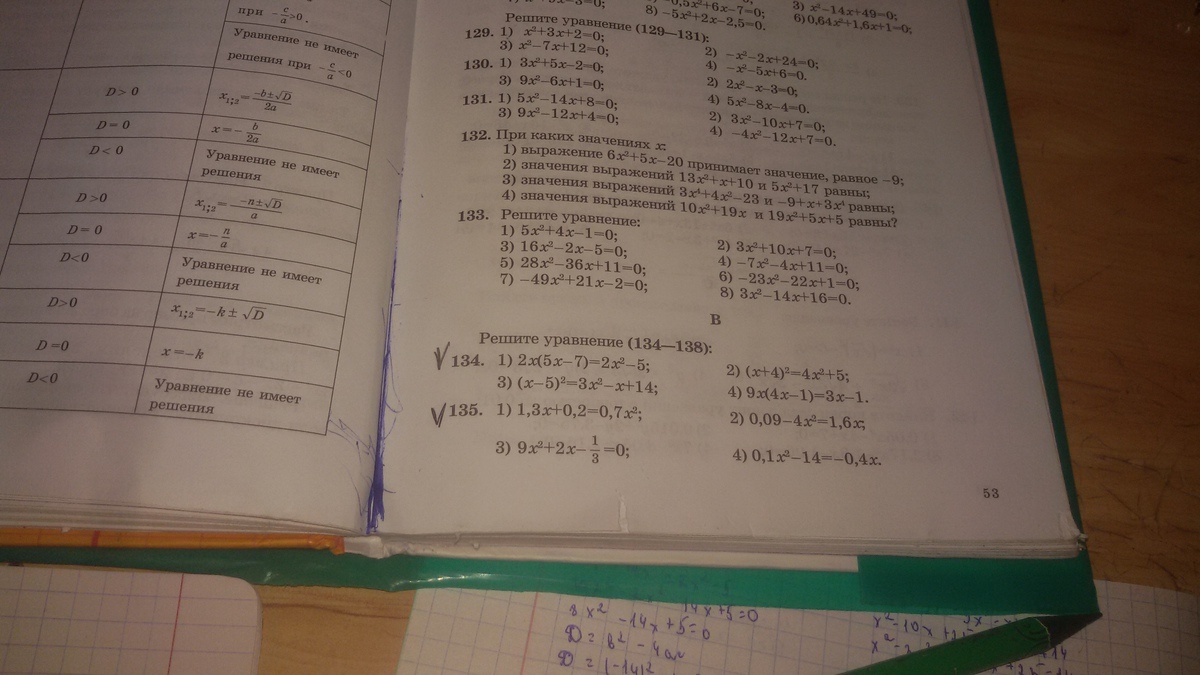 при -c/a>0.
Уравнение не имеет
решения при -c/a<0
D> 0
x₁;₂=(-b±√D)/2a
D= 0
x=-b/2a
D< 0
Уравнение не имеет
решения
D >0
x₁;₂=(-n±√D)/a
D= 0
x=-n/a
D<0
Уравнение не имеет
решения
D>0
x₁;₂=-k± √D
D =0
x=-k
D<0
Уравнение не имеет
решения
3) x²-14x+49=0;
8) -5x²+2x-2,5=0.
6) 0,64x²+1,6x+1=0;
Решите уравнение (129—131):
129. 1) x²+3x+2=0; 2) -x²-2x+24=0;
3) x²-7x+12=0; 4) -x²-5x+6=0.
130. 1) 3x²+5x-2=0; 2) 2x²-x-3=0;
3) 9x²-6x+1=0; 4) 5x²-8x-4=0.
131. 1) 5x²-14x+8=0; 2) 3x²-10x+7=0;
3) 9x²-12x+4=0; 4) -4x²-12x+7=0.
132. При каких значениях x:
1) выражение 6x²+5x-20 принимает значение, равное -9;
2) значения выражений 13x²+x+10 и 5x²+17 равны;
3) значения выражений 3x⁴+4x²-23 и -9+x+3x⁴ равны;
4) значения выражений 10x²+19x и 19x²+5x+5 равны?
133. Решите уравнение:
1) 5x²+4x-1=0; 2) 3x²+10x+7=0;
3) 16x²-2x-5=0; 4) -7x²-4x+11=0;
5) 28x²-36x+11=0; 6) -23x²-22x+1=0;
7) -49x²+21x-2=0; 8) 3x²-14x+16=0.
В
Решите уравнение (134—138):
134. 1) 2x(5x-7)=2x²-5; 2) (x+4)²=4x²+5;
3) (x-5)²=3x²-x+14; 4) 9x(4x-1)=3x-1.
135. 1) 1,3x+0,2=0,7x²; 2) 0,09-4x²=1,6x;
3) 9x²+2x-1/3=0; 4) 0,1x²-14=-0,4x.
53
14x+5=0
8x² -14x+5=0
D = b² - 4ac
D = (-14)²